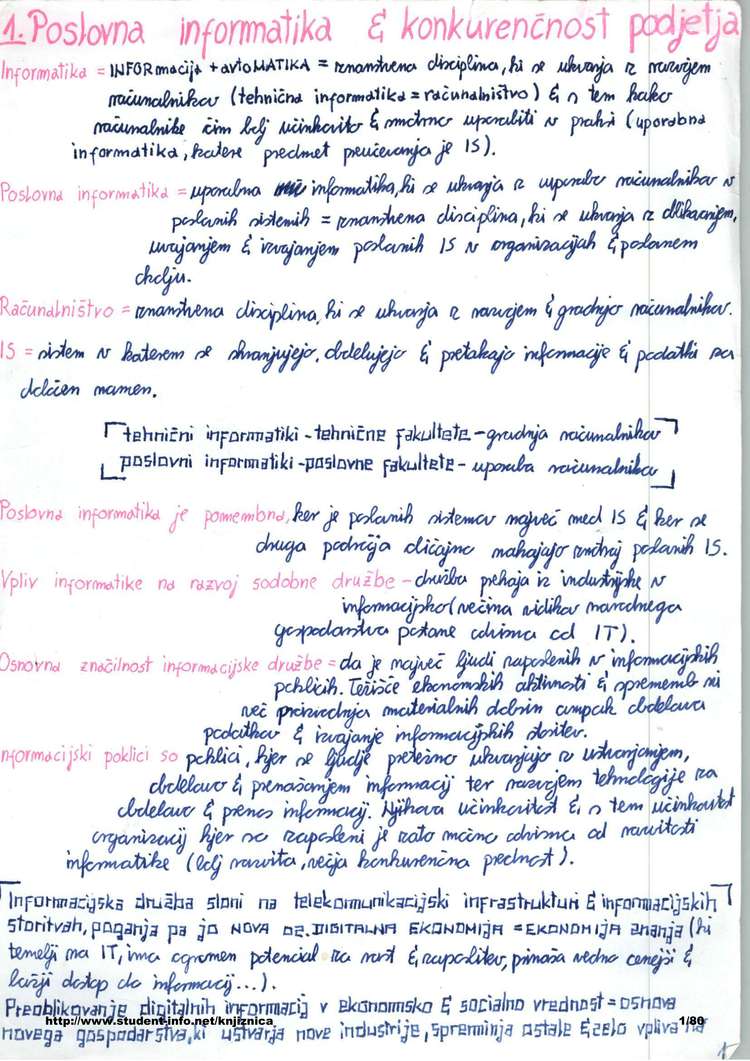 1. Poslovna informatika & konkurenčnost podjetja
Informatika = INFORmacija + avtoMATIKA = znanstvena disciplina, ki se ukvarja z razvojem
računalnikov (tehnična informatika = računalništvo) & s tem kako
računalnike čim bolj učinkovito & smotrno uporabiti v praksi (uporabna
informatika, katere predmet preučevanja je IS).
Poslovna informatika = uporabna informatika, ki se ukvarja z uporabo računalnikov v
poslovnih sistemih = znanstvena disciplina, ki se ukvarja z oblikovanjem,
uvajanjem & izvajanjem poslovnih IS v organizacijah & poslovnem
okolju.
Računalništvo = znanstvena disciplina, ki se ukvarja z razvojem & gradnjo računalnikov.
IS = sistem v katerem se shranjujejo, obdelujejo & pretakajo informacije & podatki za
določen namen.
tehnični informatiki - tehnične fakultete - gradnja računalnikov
poslovni informatiki - poslovne fakultete - uporaba računalnikov
Poslovna informatika je pomembna, ker je poslovnih sistemov največ med IS & ker se
druga področja običajno nahajajo znotraj poslovnih IS.
Vpliv informatike na razvoj sodobne družbe - družba prehaja iz industrijske v
informacijsko (večina vidikov narodnega
gospodarstva postane odvisna od IT).
Osnovna značilnost informacijske družbe = da je največ ljudi zaposlenih v informacijskih
poklicih. Težišče ekonomskih aktivnosti & sprememb ni
več proizvodnja materialnih dobrin ampak obdelava
podatkov & izvajanje informacijskih storitev.
nformacijski poklici so poklici, kjer se ljudje pretežno ukvarjajo z ustvarjanjem,
obdelavo & prenašanjem informacij ter razvojem tehnologije za
obdelavo & prenos informacij. Njihova učinkovitost & s tem učinkovitost
organizacij kjer so zaposleni je zato močno odvisna od razvitosti
informatike (bolj razvita, večja konkurenčna prednost).
Informacijska družba sloni na telekomunikacijski infrastrukturi & informacijskih
storitvah, poganja pa jo NOVA oz. DIGITALNA EKONOMIJA = EKONOMIJA znanja (ki
temelji na IT, ima ogromen potencial za rast & zaposlitev, prinaša vedno cenejši &
lažji dostop do informacij...).
Preoblikovanje digitalnih informacij v ekonomsko & socialno vrednost = osnova
novega gospodarstva, ki ustvarja nove industrije, spreminja ostale & zelo vpliva na
http://www.student-info.net/knjiznica 1/80
1